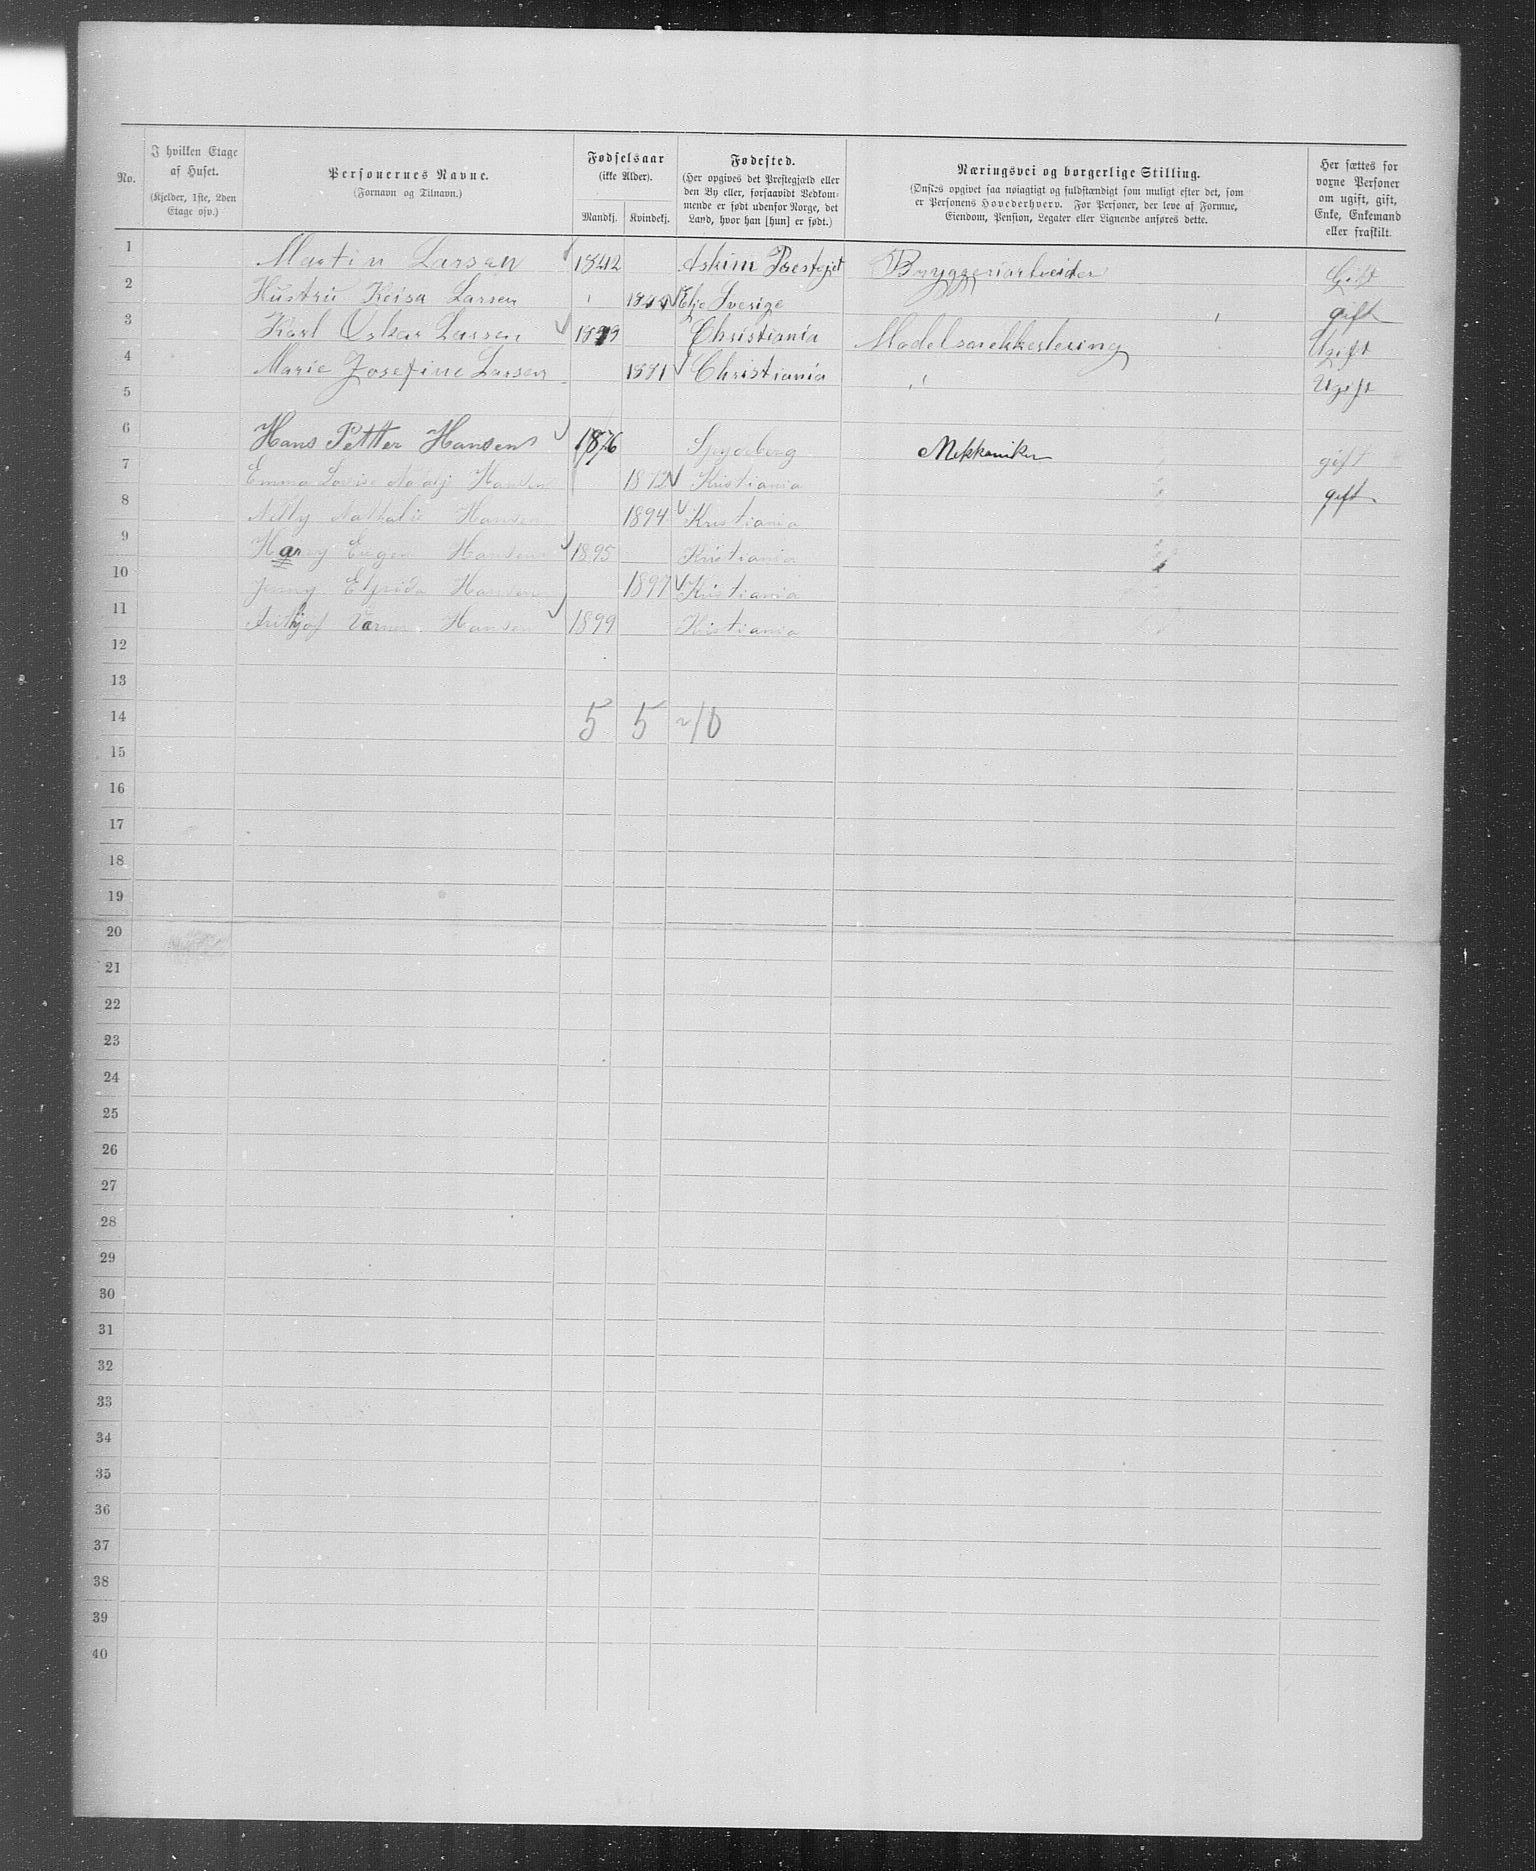 No.
I hvilken Etage af Huset.
(Kjelder, 1ste, 2den Etage osv.)
Personernes Navne.
(Fornavn og Tilnavn.)
Fødselsaar
(ikke Alder).
Mandkj. Kvindekj.
Fødested.
(Her opgives det Prestegjæld eller
den By eller, forsaavidt Vedkom-
mende er født udenfor Norge, det
Land, hvor han [hun] er født.)
Næringsvei og borgerlige Stilling.
(Ønskes opgivet saa nøiagtigt og fuldstændigt som muligt efter det, som
er Personens Hovederhverv. For Personer, der leve af Formue,
Eiendom, Pension, Legater eller Lignende anføres dette.
Her sættes for
voxne Personer
om ugift, gift,
Enke, Enkemand
eller fraskilt.
1 Martin Larsen 1842 Askim Prestgjet Bryggeriarbeider Gift
2 Hustru Keisa Larsen Sverige gift
3 Karl Oskar Larsen Christiania Ugift
4 Marie Josefine Larsen 1881 Christiania " Ugift
5
6 Hans Petter Hansen 1876 Spydeberg Mekkaniker gift
7 Emma Lovise Hansen 1872 Kristiania gift
8 Nelly Nathalie Hansen 1894 Kristiania
9 Harry Eugen Hansen 1895 Kristiania
10 Jenny Elfrida Hansen 1897 Kristiania
11 Frithjof Varner Hansen 1899 Kristiania
12
13
14 5 5 ~10
15
16
17
18
19
20
21
22
23
24
25
26
27
28
29
30
31
32
33
34
35
36
37
38
39
40